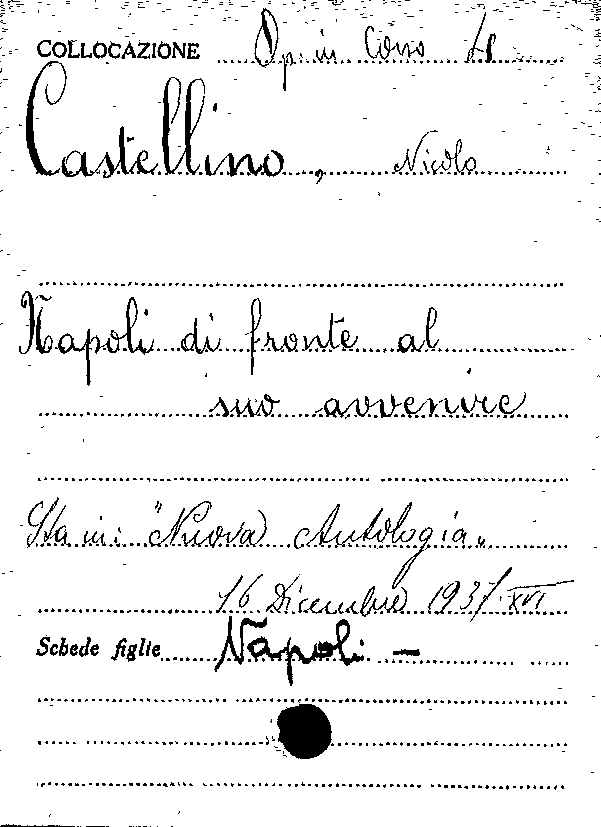 COLLOCAZIONE Op. in Corso
Castellino, Nicola
Napoli di fronte al
suo avvenire
Sta in: "Nuova Antologia"
16 Dicembre 1937. XVI
Schede figlie Napoli –